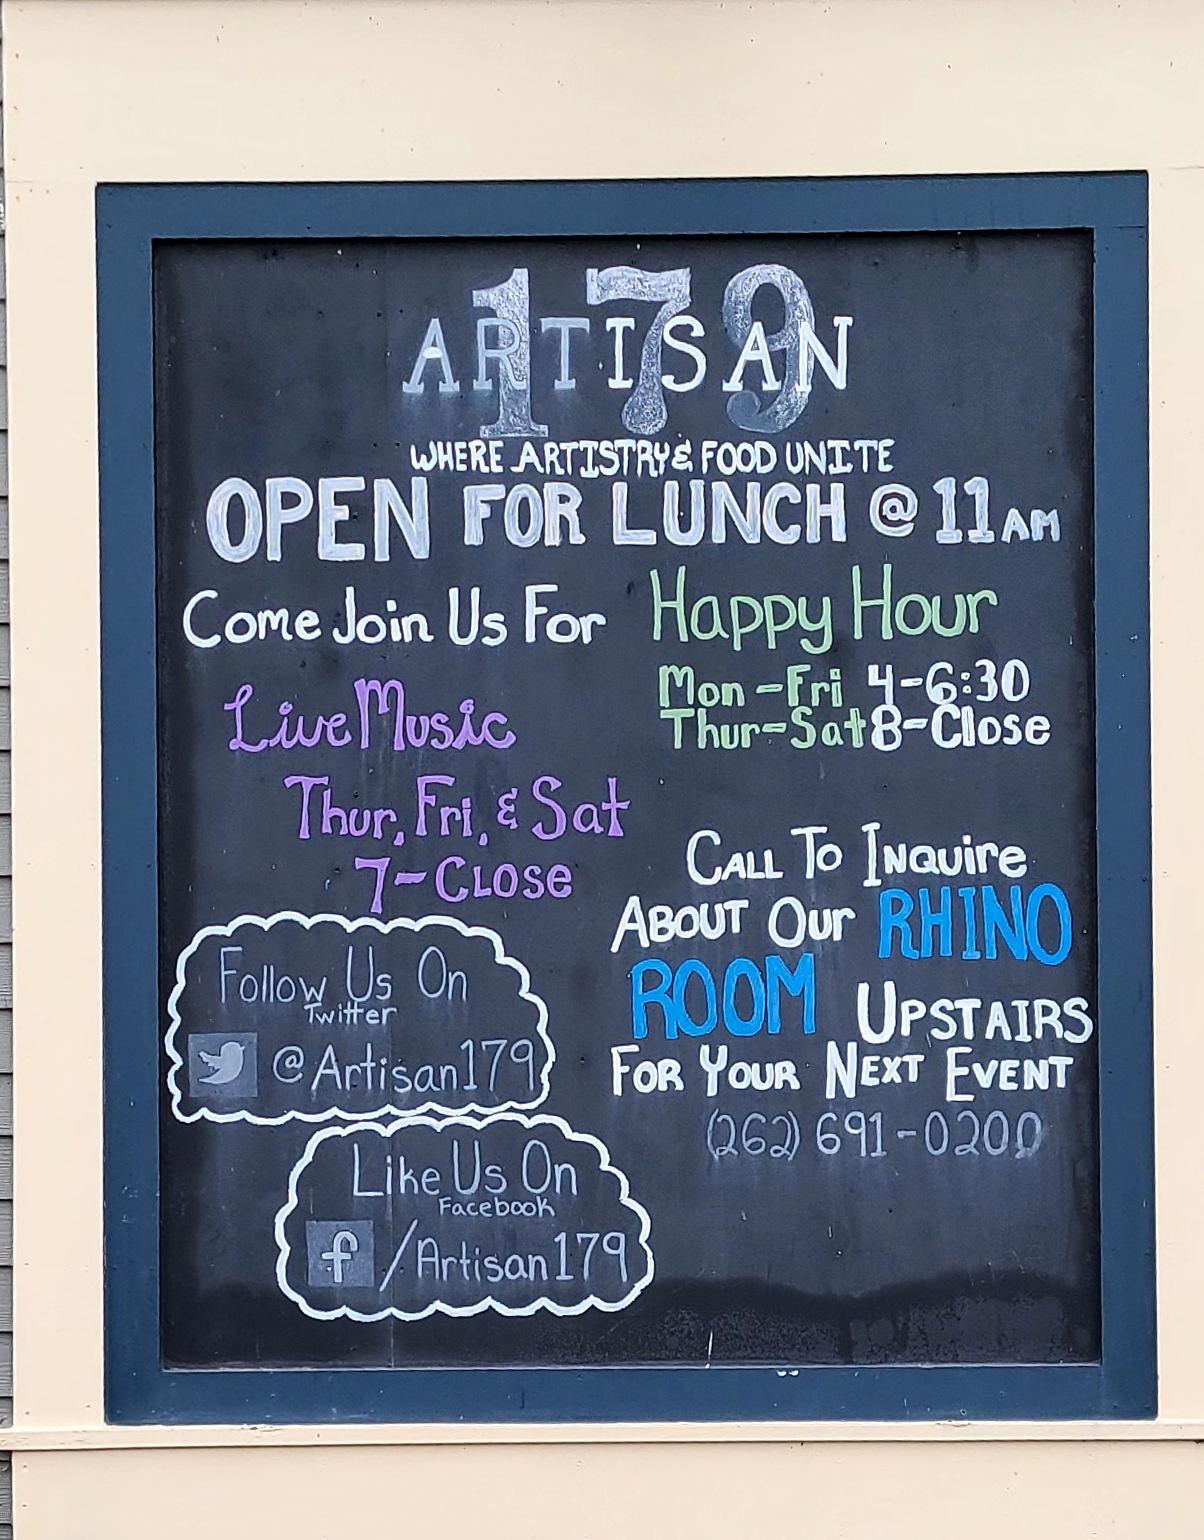 179
ARTISAN
WHERE ARTISTRY & FOOD UNITE
OPEN FOR LUNCH @ 11AM
Come Join Us For
Live Music
Thur, Fri, & Sat
7-CLOSE
Happy Hour
Mon-Fri 4-6:30
Thur-Sat 8-Close
CALL TO INQUIRE
ABOUT OUR RHINO
ROOM UPSTAIRS
FOR YOUR NEXT EVENT
(262) 691-0200
Follow Us On
Twitter
@Artisan179
Like Us On
Facebook
f /Artisan179